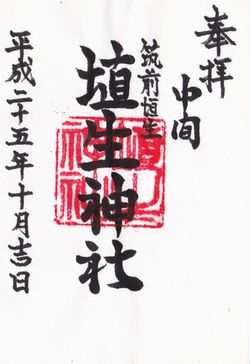 奉拝
中間
筑前垣生
埴生神社
平成二十五年十月吉日